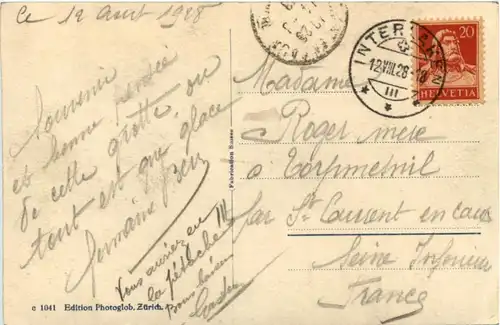 Ce 12 aout 1928
Souvenir
et bonne pensée
de cette grotte, ou
tout est que glace
Germaine
Vous auriez eu
la pétoche !!!
Bons baisers
c 1041 Edition Photoglob, Zürich.
Fabrication Suisse
INTERLAKEN
12.VIII.28
III
20
HELVETIA
Madame
Roger mère
a Torpmesnil
par St Laurent en caux
Seine Inférieure
France